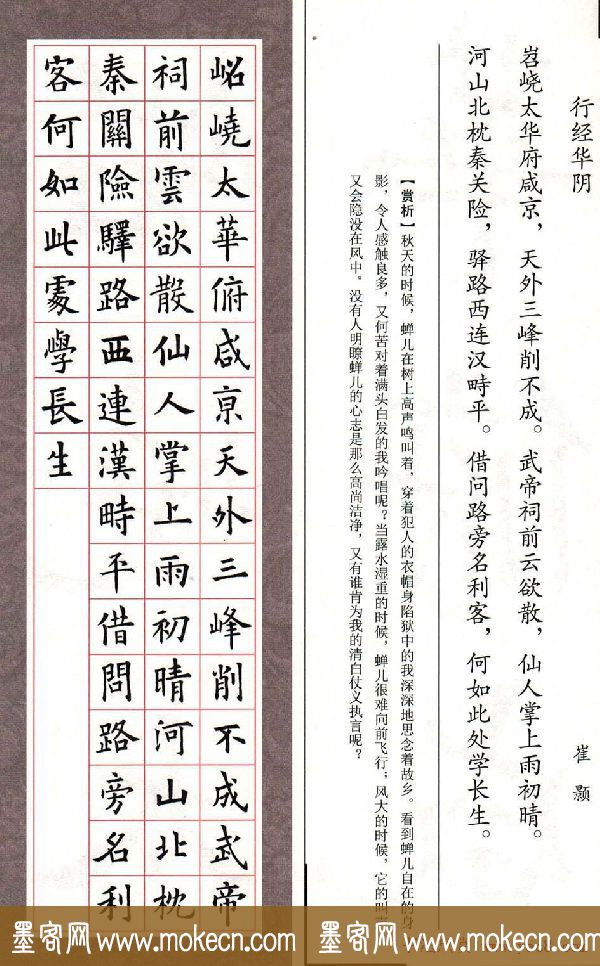 行经华阴
崔颢
岧峣太华府咸京，天外三峰削不成。武帝祠前云欲散，仙人掌上雨初晴。
河山北枕秦关险，驿路西连汉畤平。借问路旁名利客，何如此处学长生。
【赏析】秋天的时候，蝉儿在树上高声鸣叫着，穿着犯人的衣帽身陷狱中的我深深地思念着故乡。看到蝉儿自在的身
影，令人感触良多，又何苦对着满头白发的我吟唱呢？当露水湿重的时候，蝉儿很难向前飞行；风大的时候，它的叫
又会隐没在风中。没有人明瞭蝉儿的心志是那么高尚洁净，又有谁肯为我的清白仗义执言呢？
岹嶢太華俯咸京天外三峰削不成武帝
祠前雲欲散仙人掌上雨初晴河山北枕
秦關險驛路西連漢時平借問路旁名利
客何如此處學長生
墨客网www.mokecn.com
墨客网www.mokecn.com